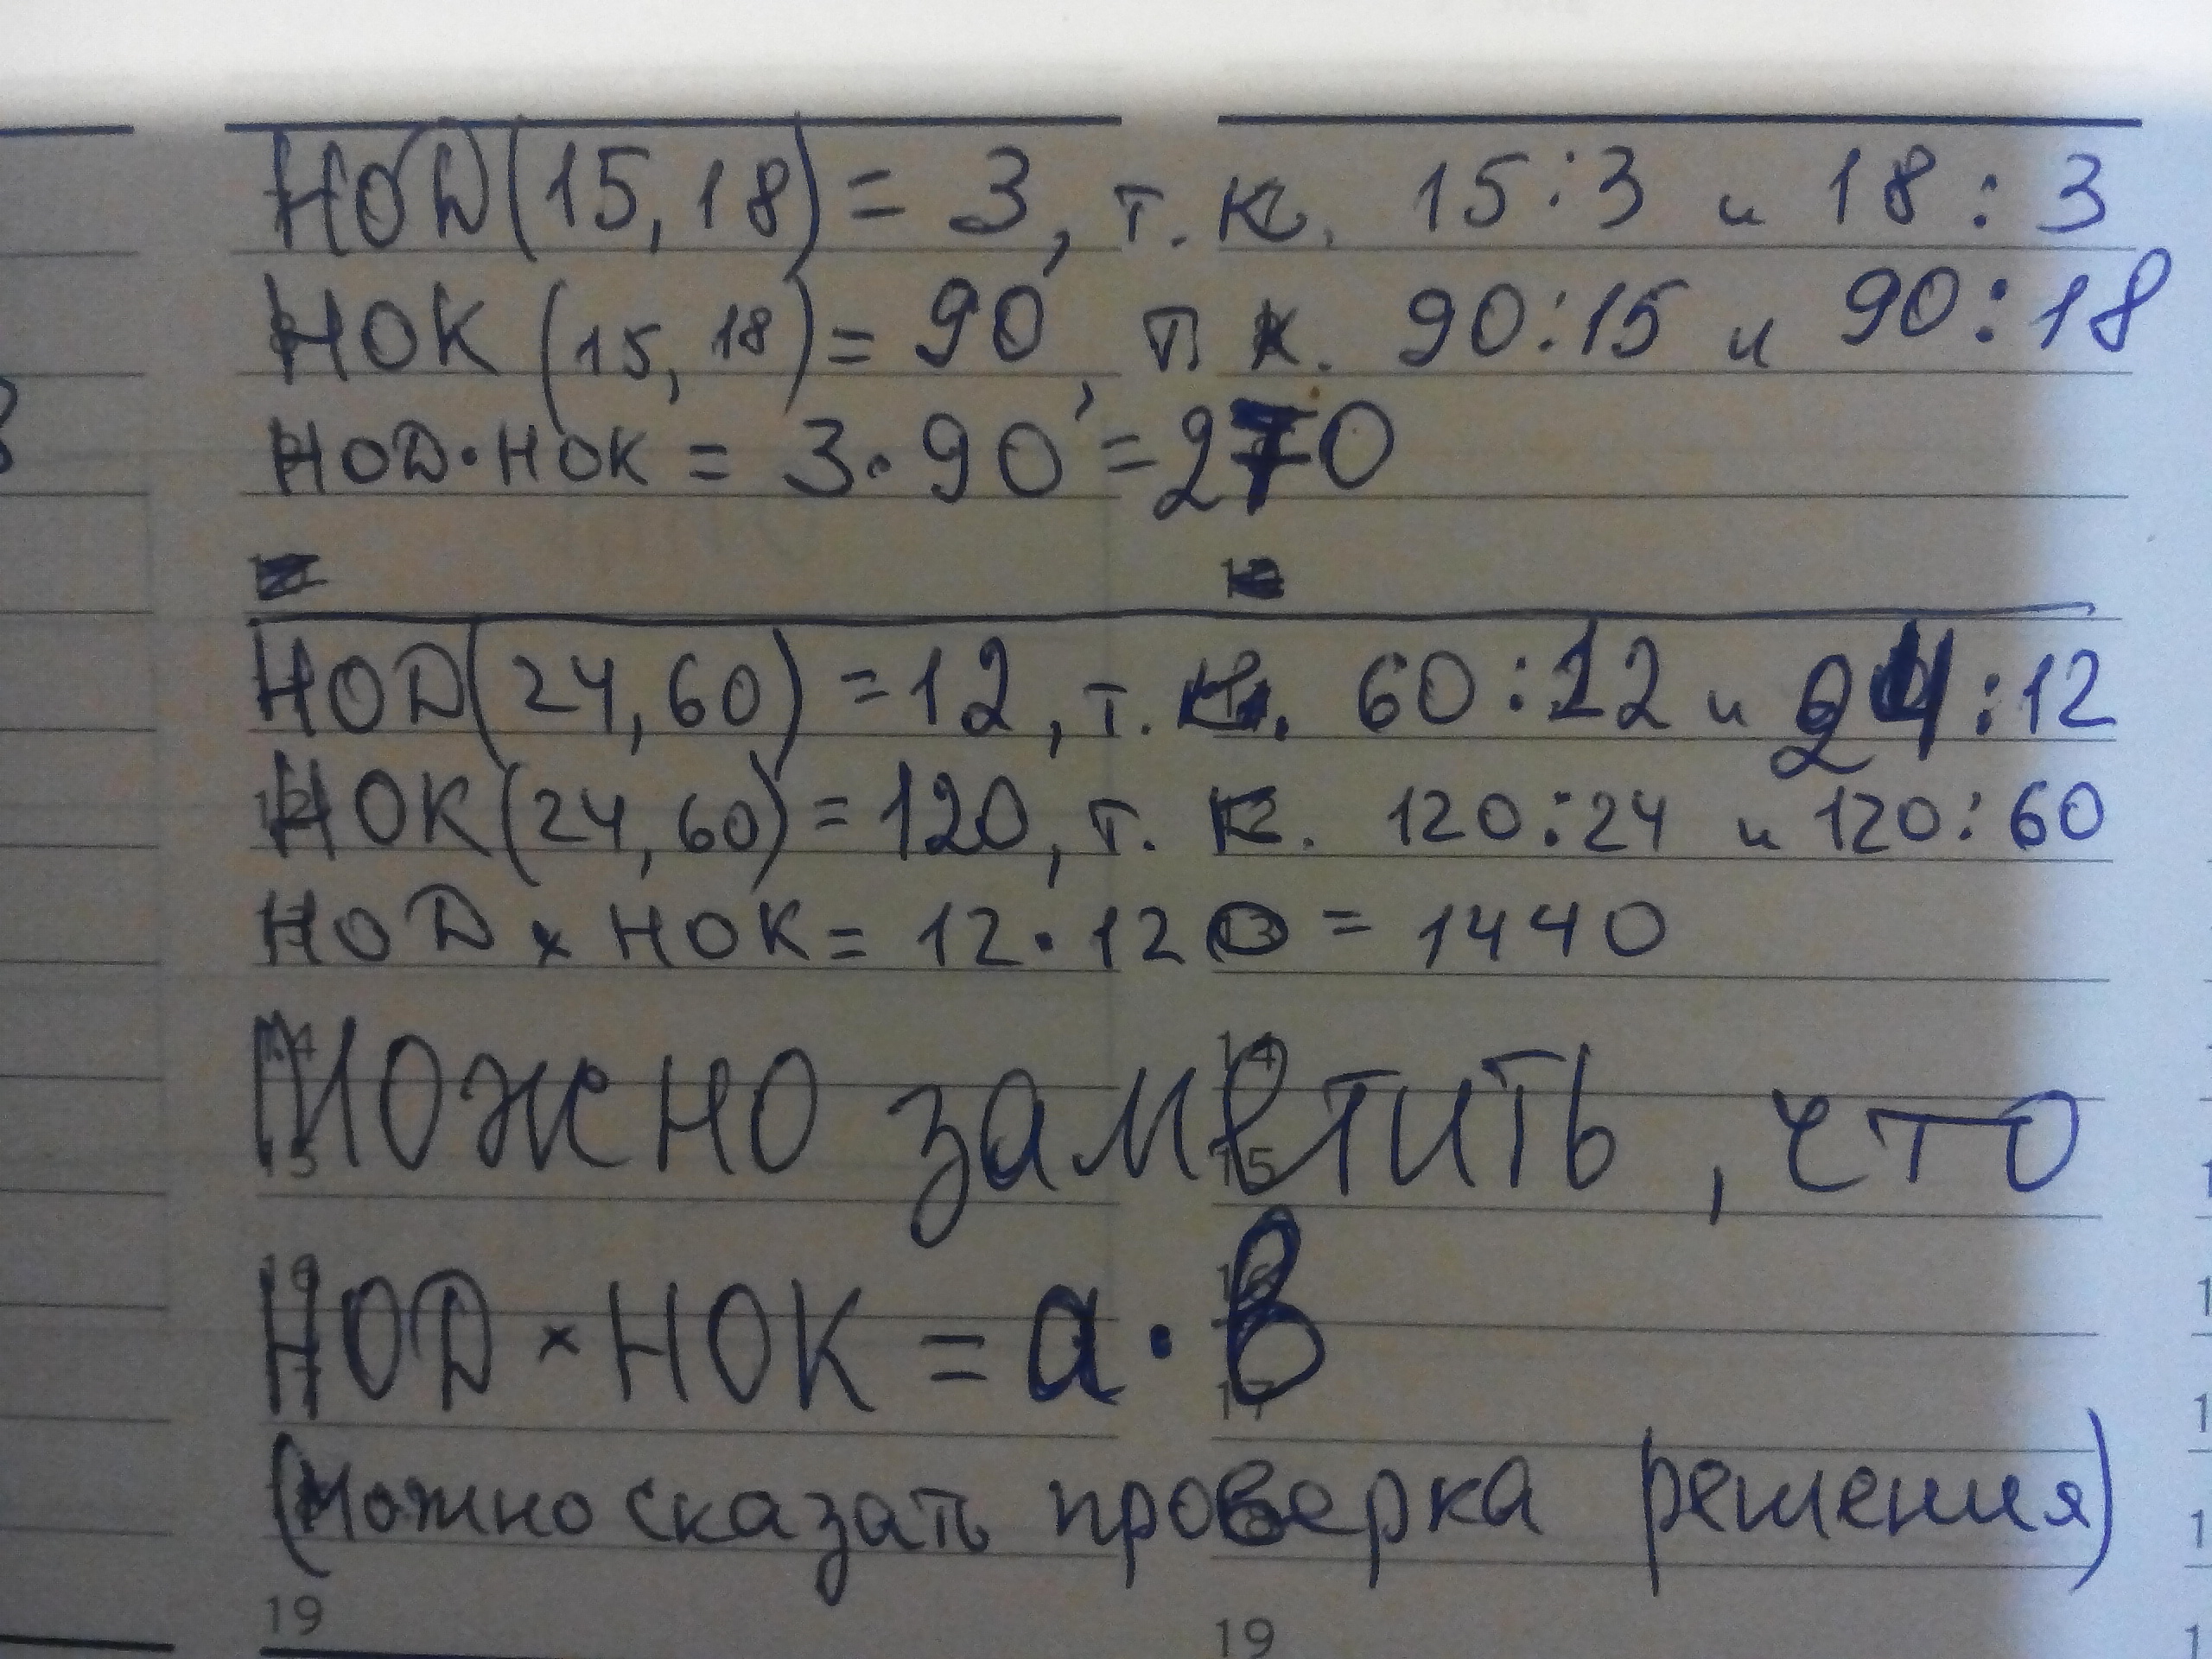 НОД(15,18)=3, т.к. 15:3 и 18:3
НОК (15,18)=90, т.к. 90:15 и 90:18
НОД·НОК = 3·90=270
НОД(24,60)=12, т.к. 60:12 и 24:12
НОК(24,60)=120, т.к. 120:24 и 120:60
НОД × НОК = 12·120 = 1440
Можно заметить, что
НОД × НОК = а·в
(можно сказать проверка решения)
19 19